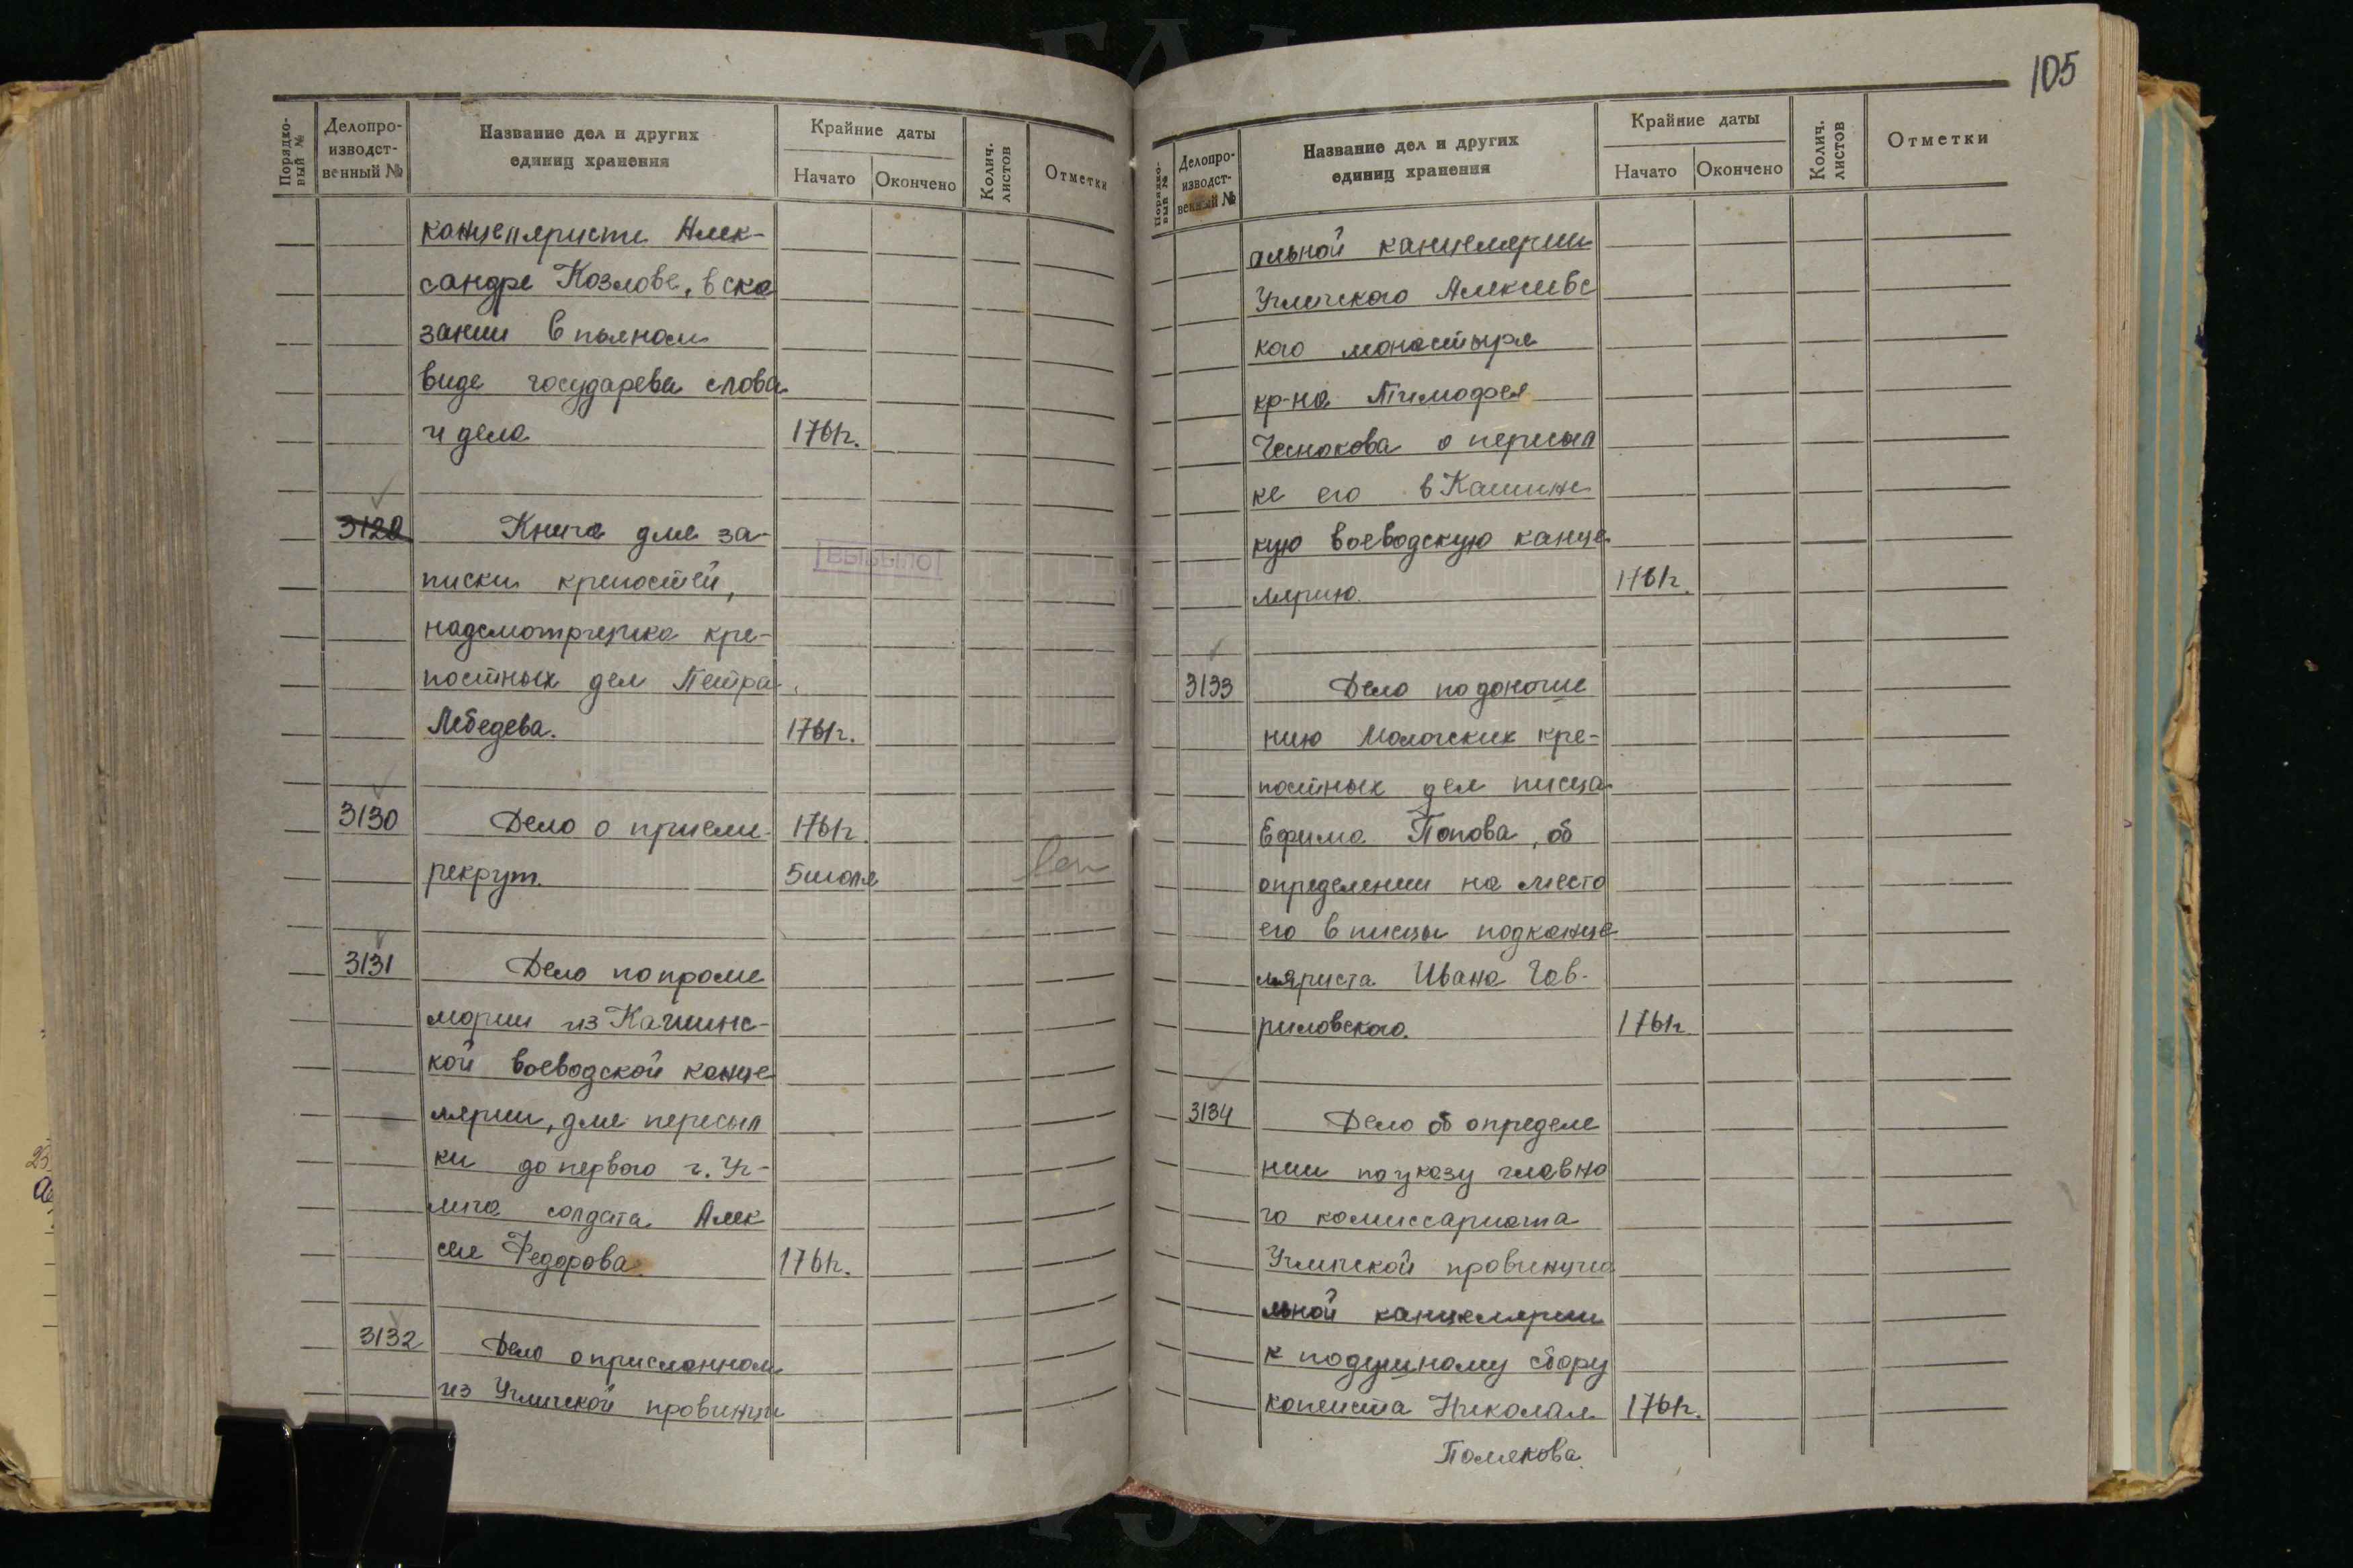 105
Порядко-
вый №
Делопро-
изводст-
венный №
Название дел и других
единиц хранения
Крайние даты
Начато
Окончено
Колич.
листов
Отметки
канцеляристе Алек-
сандре Козлове, в ска
зании в пьяном
виде государева слова
и дела 1761г.
3129 Книга для за-
писки крепостей,
ВЫБЫЛО
надсмотрщика кре-
постных дел Петра
Лебедева. 1761г.
3130 Дело о приеме 1761г.
рекрут. 5 июля
3131 Дело по проме
мории из Кашинс-
кой воеводской канце
лярии, для пересыл
ки до первого г. Уг-
лича солдата Алек
сея Федорова. 1761г.
3132 Дело о присланном
из Угличской провинци
Порядко-
вый №
Делопро-
изводст-
венный №
Название дел и других
единиц хранения
Крайние даты
Начато
Окончено
Колич.
листов
Отметки
альной канцелярии
Угличского Алексеевс
кого монастыря
кр-на Тимофея
Чеснокова о пересыл
ке его в Кашинс
кую воеводскую канце
лярию. 1761г.
3133 Дело по доноше
нию Мологских кре-
постных дел писца
Ефима Попова, об
определении на место
его в писцы подканце
ляриста Ивана Гав-
риловского. 1761г
3134 Дело об определе
нии по указу главно
го комиссариата
Угличской провинциа
льной канцелярии
к подушному сбору
копеиста Николая 1761г.
Полякова.